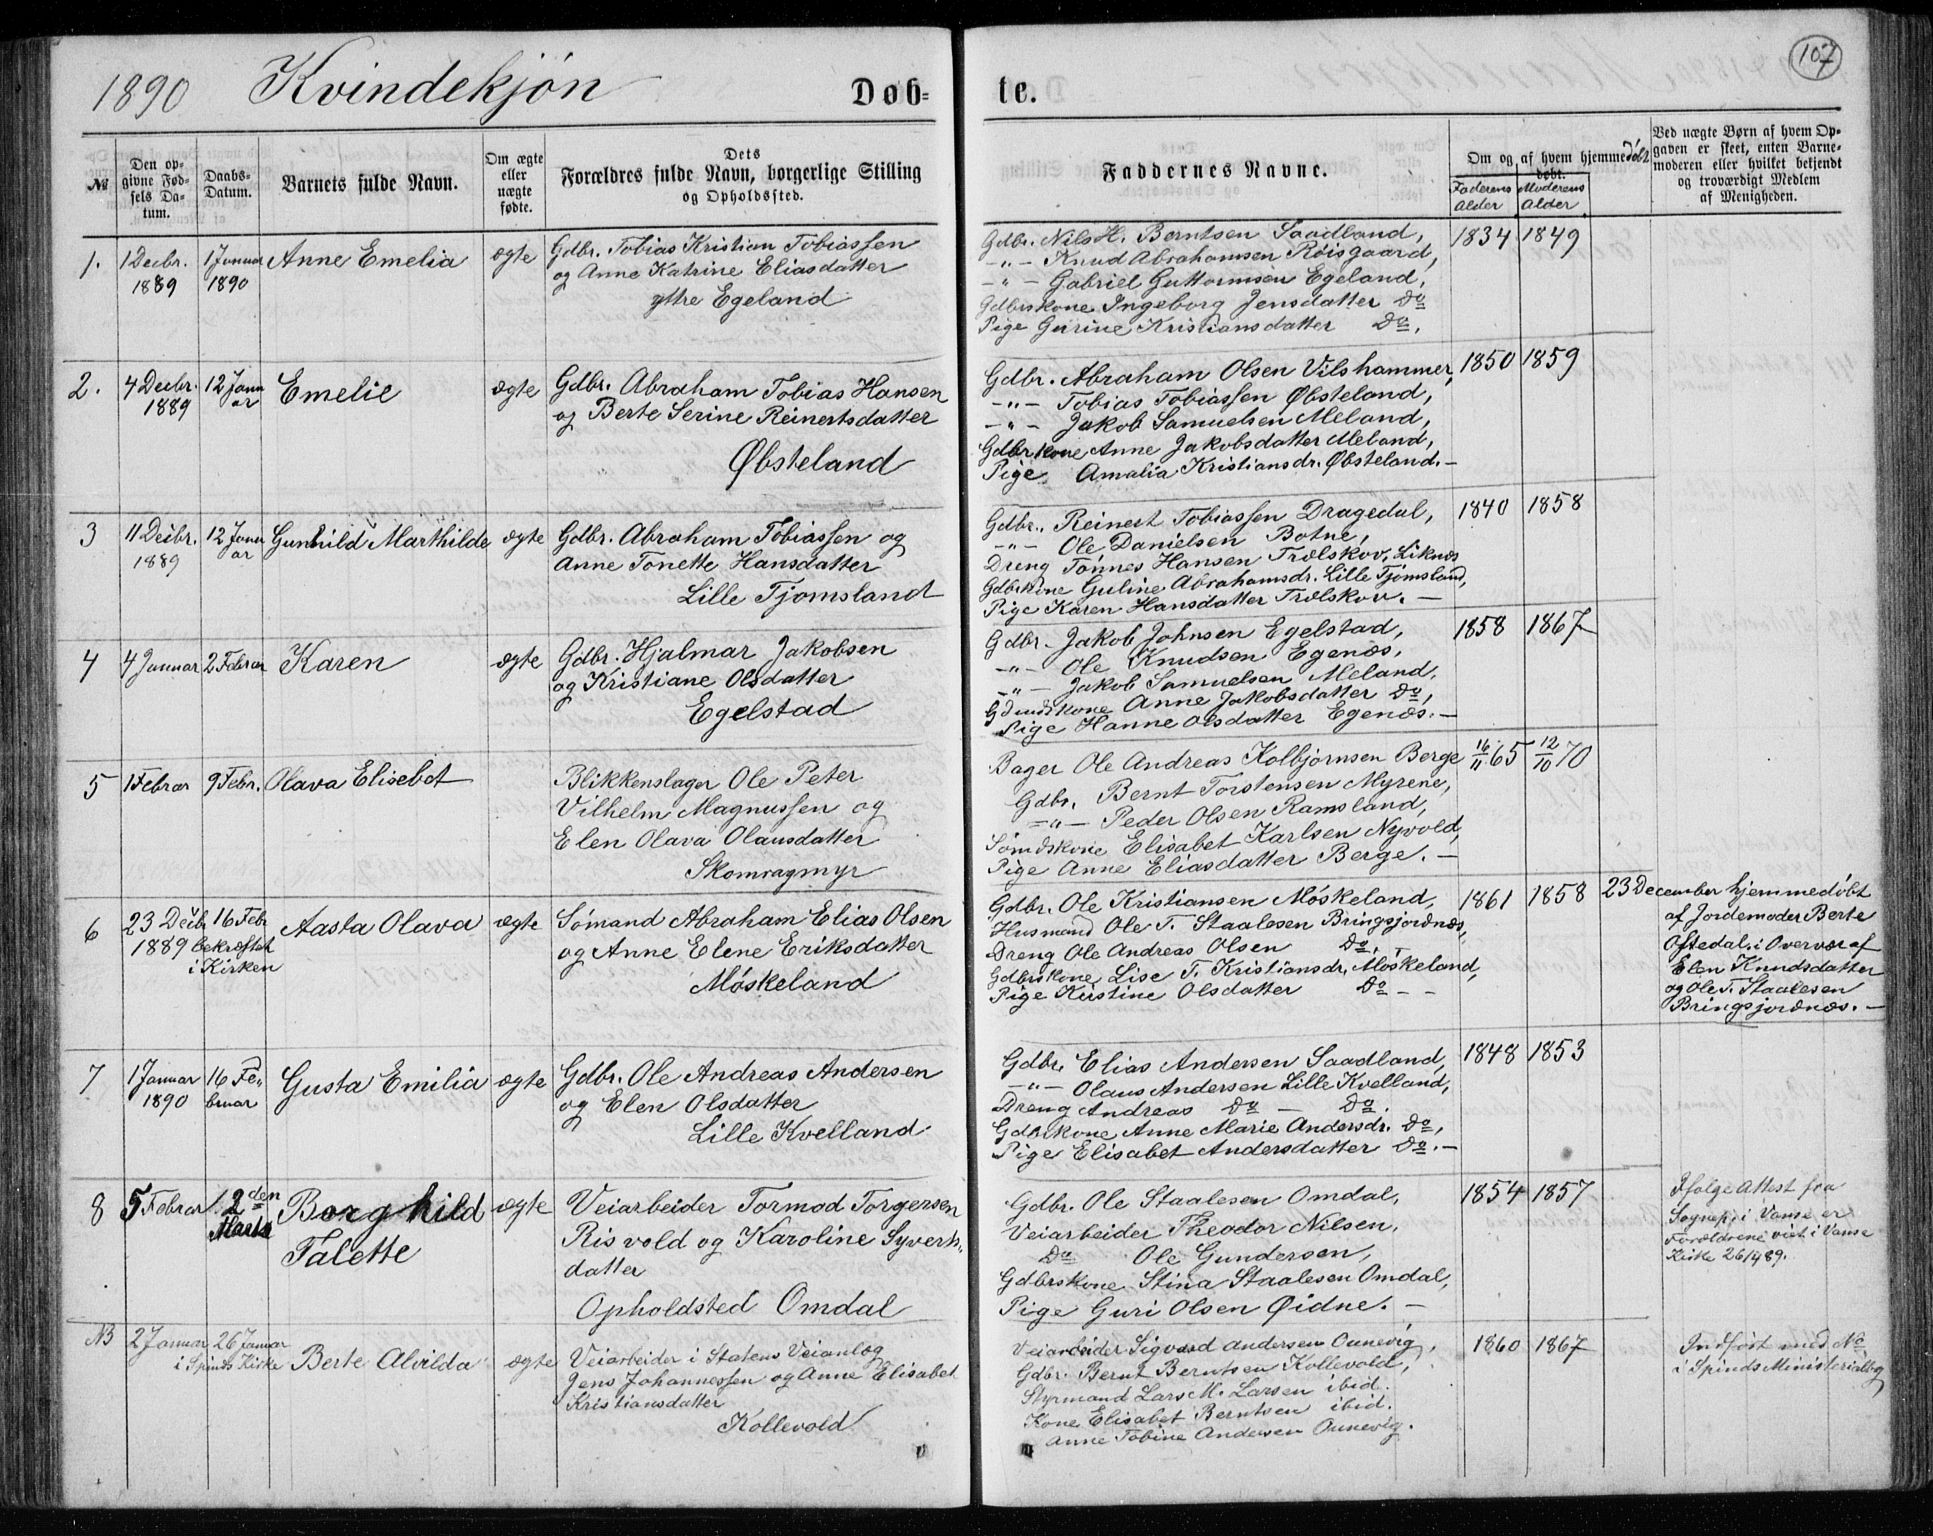 107
1890 Kvindekjön Døb= te.
№
Den op-
givne Fød-
sels Da-
tum.
Daabs-
Datum.
Barnets fulde Navn.
Om ægte
eller
uægte
fødte.
Dets
Forældres fulde Navn, borgerlige Stilling
og Opholdssted.
Faddernes Navne.
Om og af hvem hjemmedøbt
døbt.
Faderens
Alder
Moderens
Alder
Ved uægte Børn af hvem Op-
gaven er skeet, enten Barne-
moderen eller hvilket bekjendt
og troværdigt Medlem
af Menigheden.
1.
1 Decbr.
1889
1 Januar
1890
Anne Emelia
ægte
Gdbr. Tobias Kristian Tobiassen
og Anne Katrine Eliasdatter
yttre Egeland
Gdbr. Nils H. Berntsen Saadland,
-"- Knud Abrahamsen Röisgaard,
-"- Gabriel Guttormsen Egeland,
Gdbrskone Ingeborg Jensdatter Do
Pige Gurine Kristiansdatter Do.
1834
1849
2.
4 Decbr.
1889
12 Janu
ar
Emelie
ægte
Gdbr. Abraham Tobias Hansen
og Berte Serine Reinertsdatter
Øbsteland
Gdbr. Abraham Olsen Vilshammer,
-"- Tobias Tobiassen Øbsteland,
-"- Jakob Samuelsen Meland,
Gdbrkone Anne Jakobsdatter Meland,
Pige Amalia Kristiansdr. Øbsteland.-
1850
1859
3
11 Decbr.
1889
12 Janu
ar
Gunhild Marthilde
ægte
Gdbr. Abraham Tobiassen og
Anne Tonette Hansdatter
Lille Tjomsland
Gdbr. Reinert Tobiassen Dragedal,
-"- Ole Danielsen Botne,
Dreng Tönnes Hansen Trælskov, Liknes
Gdbrkone Guline Abrahamsdr. Lille Tjomsland,
Pige Karen Hansdatter Trælskov.-
1840
1858
4
4 Januar
2 Februar
Karen
ægte
Gdbr. Hjalmar Jakobsen
og Kristiane Olsdatter
Egelstad
Gdbr. Jakob Johnsen Egelstad,
-"- Ole Knudsen Egenæs,
-"- Jakob Samuelsen Meland,
Gdmdskone Anne Jakobsdatter Do,
Pige Hanne Olsdatter Egenæs.-
1858
1867
5
1 Februar
9 Febr.
Olava Elisebet
Blikkenslager Ole Peter
Vilhelm Magnussen og
Elen Olava Olausdatter
Skomragmyr
Bager Ole Andreas Kolbjörnsen Berge
Gdbr. Bernt Torstensen Myrene,
-"- Peder Olsen Ramsland,
Sömdskone Elisabet Karlsen Nyvold,
Pige Anne Eliasdatter Berge.-
16/11 65
12/10 70
6
23 Decbr
1889
16 Febr
bekræftet
i Kirken
Aasta Olava
ægte
Sömand Abraham Elias Olsen
og Anne Elene Eriksdatter
Möskeland
Gdbr. Ole Kristiansen Möskeland,
Husmand Ole T. Staalesen Bringsjordnæs,
Dreng Ole Andreas Olsen Do.
Gdbrskone Lise T. Kristiansdr. Möskeland,
Pige Kirstine Olsdatter Do - -
1861
1858
23 December hjemmedöbt
af Jordemoder Berte
Oftedal, i Overvær af
Elen Knudsdatter
og Ole T. Staalesen
Bringsjordnæs.-
7
1 Januar
1890
16 Fe-
bruar
Gusta Emilia
ægte
Gdbr. Ole Andreas Andersen
og Elen Olsdatter
Lille Kvelland
Gdbr. Elias Andersen Saadland,
-"- Olaus Andersen Lille Kvelland,
Dreng Andreas Do - Do.
Gdbrkone Anne Marie Andersdr. Do,
Pige Elisabet Andersdatter Do.-
1848
1853
8
5 Februar
2den
Marts
Borghild
Talette
ægte
Veiarbeider Tormod Torgersen
Risvold og Karoline Syverts-
datter
Opholdsted Omdal
Gdbr. Ole Staalesen Omdal,
Veiarbeider Theodor Nilsen,
Do Ole Gundersen,
Gdbrskone Stina Staalesen Omdal,
Pige Guri Olsen Øidne.-
1854
1857
Ifølge Attest fra
Sognep. i Vanse er
Forældrene viet i Vanse
Kirke 26/4 89.
NB
2 Januar
26 Januar
i Spinds Kirke
Berte Alvilda
ægte
Veiarbeider i Statens Veianlæg
Jens Johannessen og Anne Elisabet
Kristiansdatter
Kollevold
Veiarbeider Sigvard Andersen Ounevig,
Gdbr. Bernt Berntsen Kollevold,
Styrmand Lars M. Larsen ibid.
Kone Elisabet Berntsen ibid.
Anne Tobine Andersen Ounevig.
1860
1867
Indført med No
i Spinds Ministerialbog